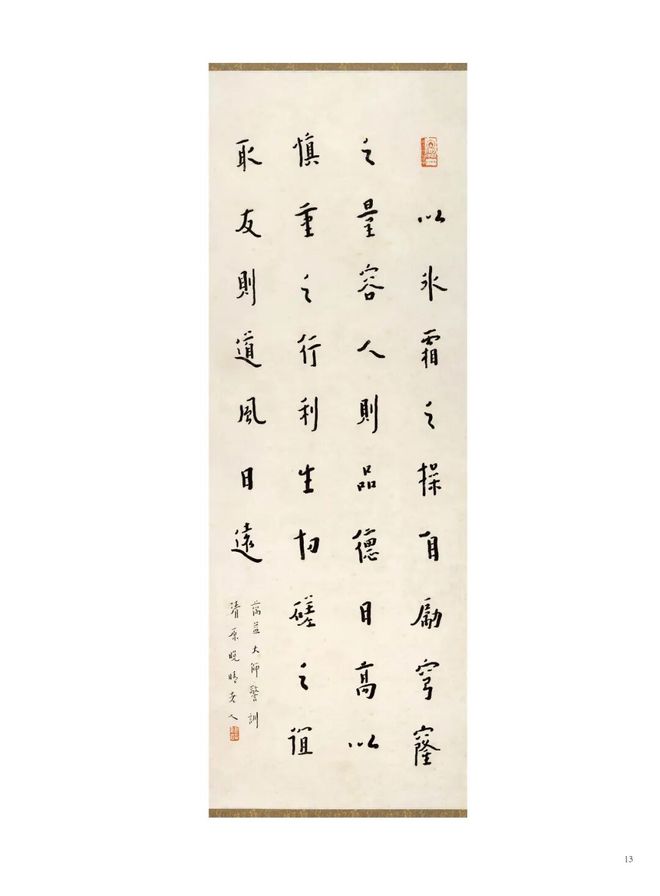 以冰霜之操自勵穹窿
之量容人則品德日高以
慎重之行利生切磋之誼
取友則道風日遠
蕅益大師警訓
晚晴老人
13